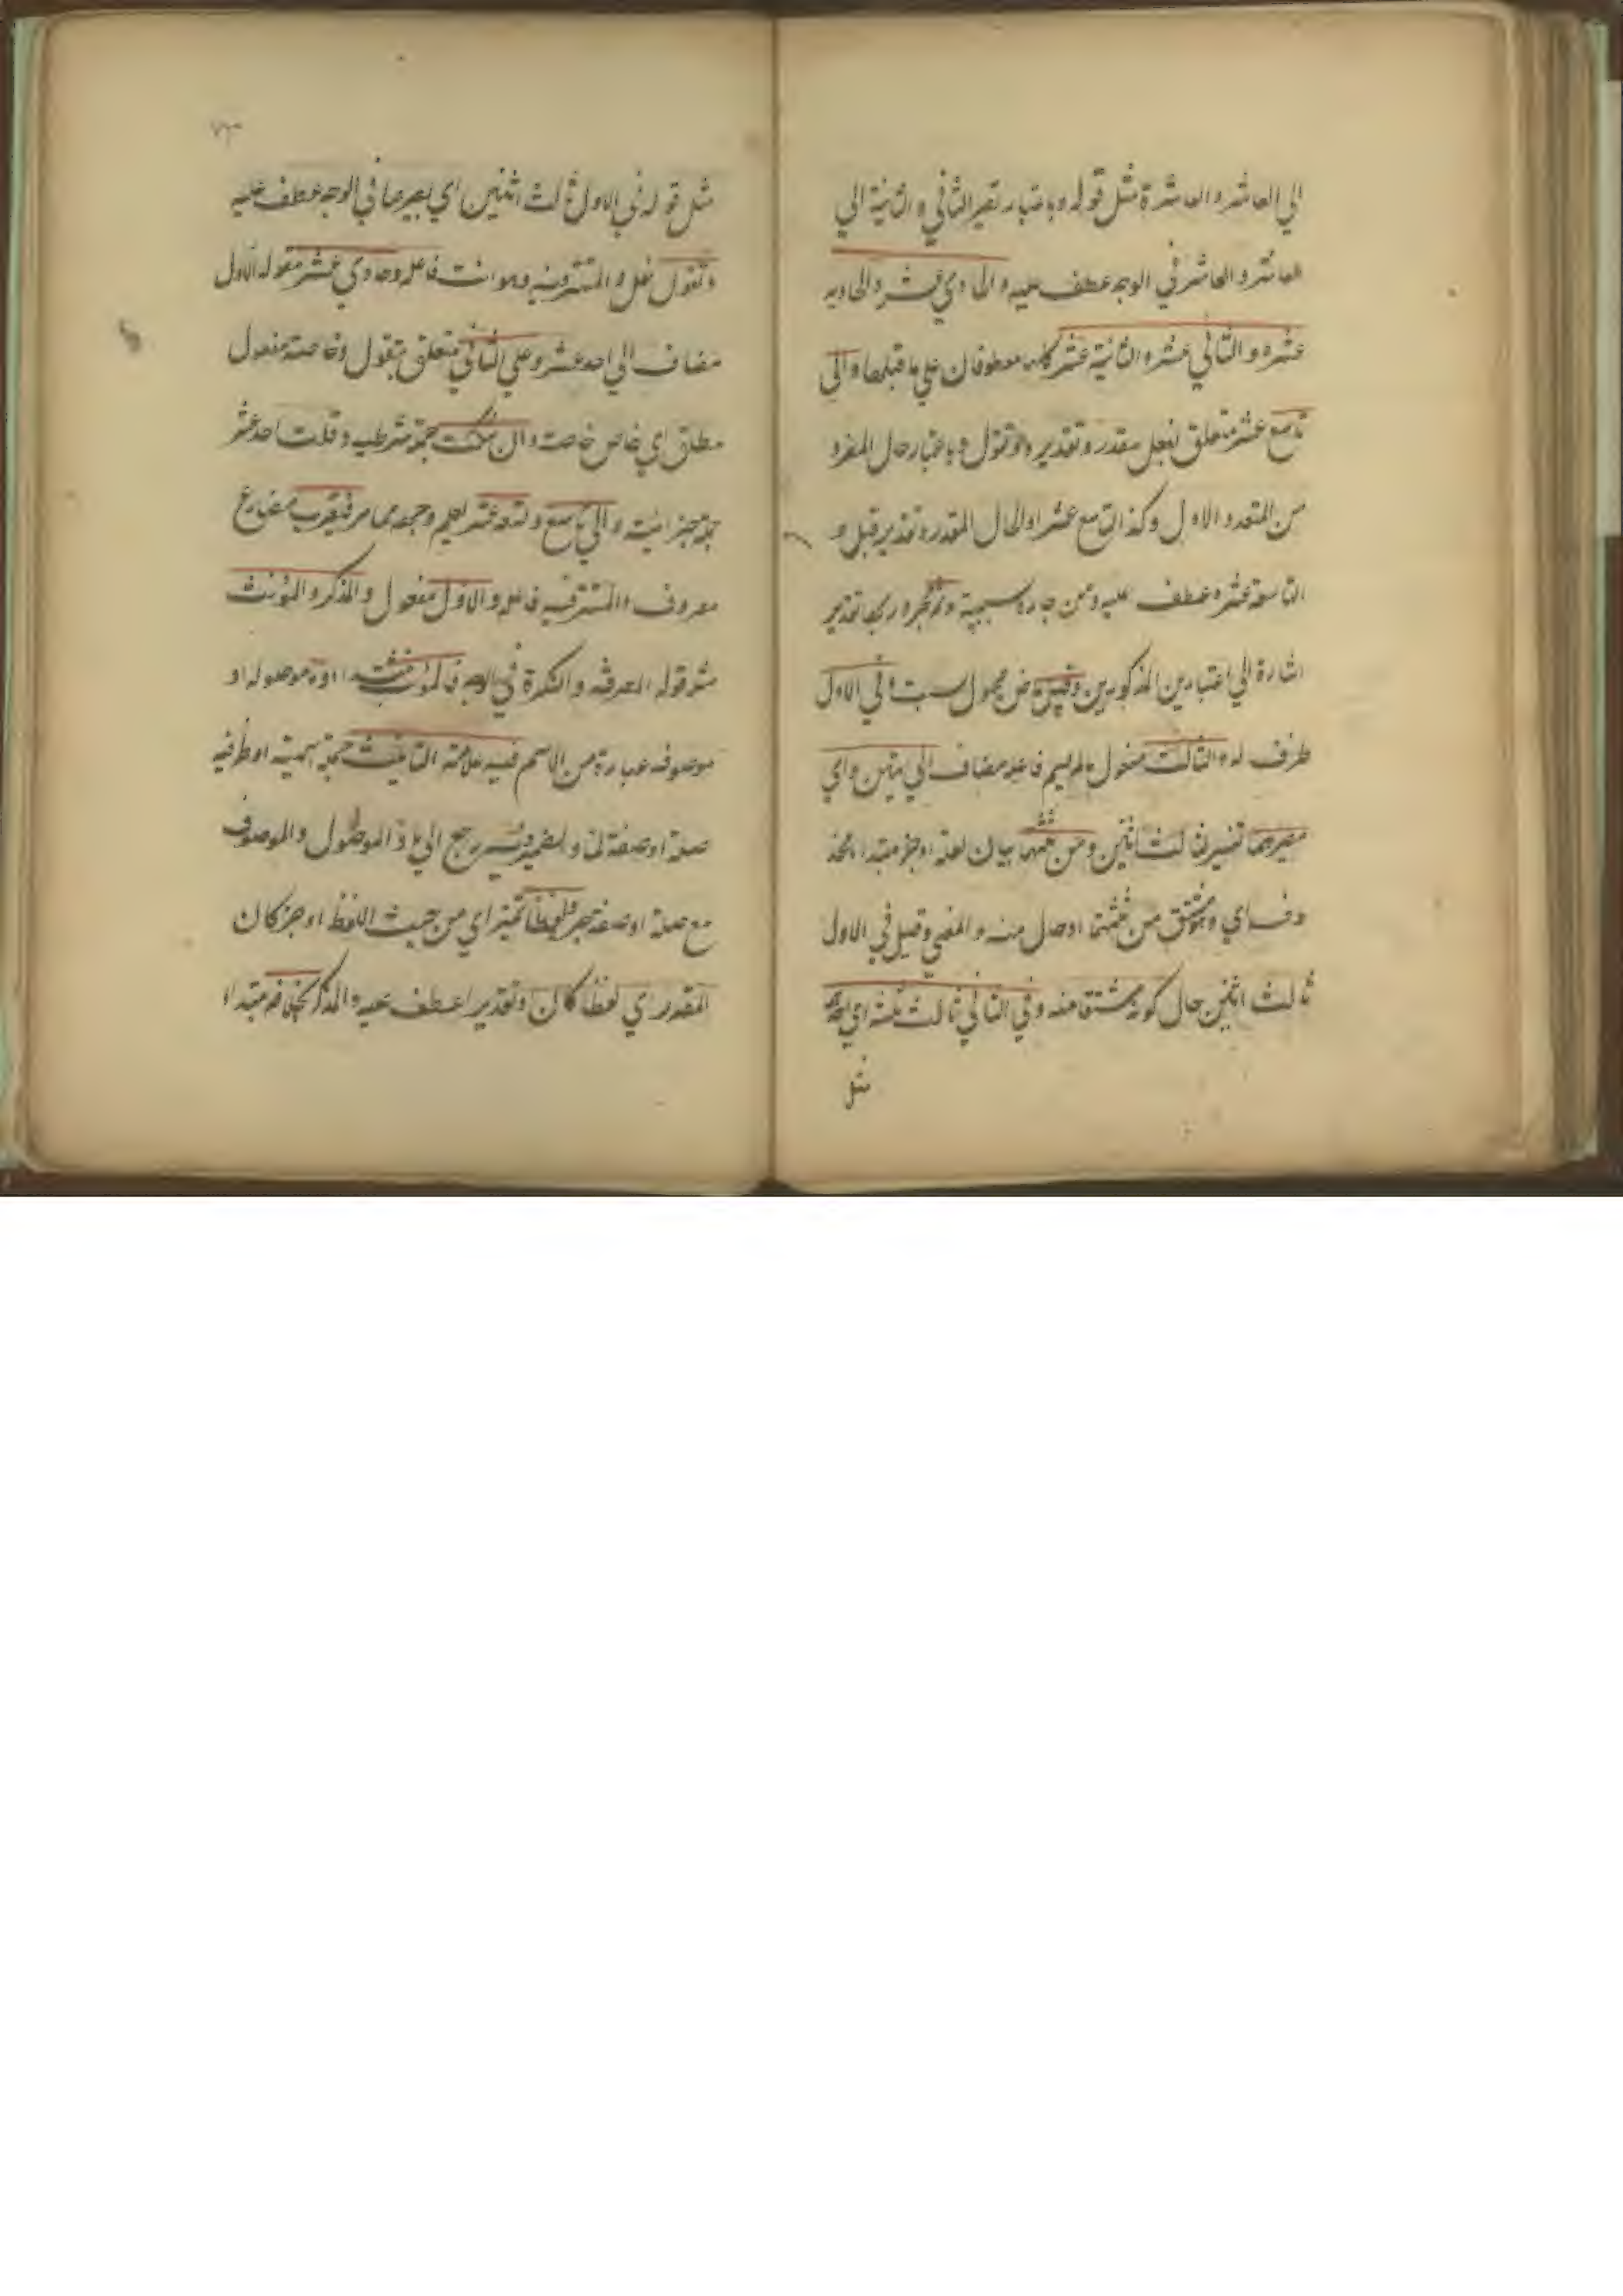 الي العاشر والعاشرة مثل قوله وباعتبار تصير الثاني والثانية الي
العاشر والعاشر في الوجه عطف عليه والحادي عشر والحادية
عشره والثاني عشر والثانية عشر كلمه معطوفان علي ما قبلها والي
تاسع عشر متعلق بفعل مقدر وتقديره وتقول باعتبار حال المفرد
من المتعدد الاول وكذ التاسع عشر او الحال المقدره تقدير قبل و
التاسعة عشره عطف عليه ومن جاره سببية وثم مجرور بها تقدير
اشارة الي اعتبارين المذكورين وقيل ماض مجهول سبت في الاول
ظرف له الثالث مفعول مالم يسم فاعله مضاف الي اثنين واي
مصيرهما تفسير ثالث اثنين ومن ثلثتهما بيان لغة او خبر مبتدا محذ
وف اي ومشتق من ثلثتهما او حال منه والمعني وقيل في الاول
ثالث اثنين حال كونه مشتقا منه وفي الثاني ثالث ثلثة اي احدها
مثل
مثل قوله في الاول ثالث اثنين اي مصيرهما في الوجه عطف عليه
وتقول فعل والمستتر فيه وهو انت فاعله وحادي عشر مقوله الاول
مضاف الي احد عشر وعلي الثاني متعلق بتقول وخاصة مفعول
مطلق اي خاص خاصة وان شئت جملة شرطيه وقلت احد عشر
جملة جزائية والي تاسع وتسعة عشر لعلم وجهه مما مر فتعرب مضارع
معروف والمستتر فيه فاعله والاول مفعول والمذكر والمؤنث
مثل قوله المعرفه والنكرة في الوجه فالمؤنث مبتدا وما موصوله او
موصوفه عبارة من الاسم فيه علامة التانيث جملة اسمية او ظرفيه
صلة او صفة لما والضمير فيه يرجع الي ما فالموصول والموصوف
مع صلة او صفة خبر لفظا تميز اي من حيث اللفظ او خبر كان
المقدر اي لفظا كان وتقديرا عطف عليه والمذكر بخلافه مبتدا